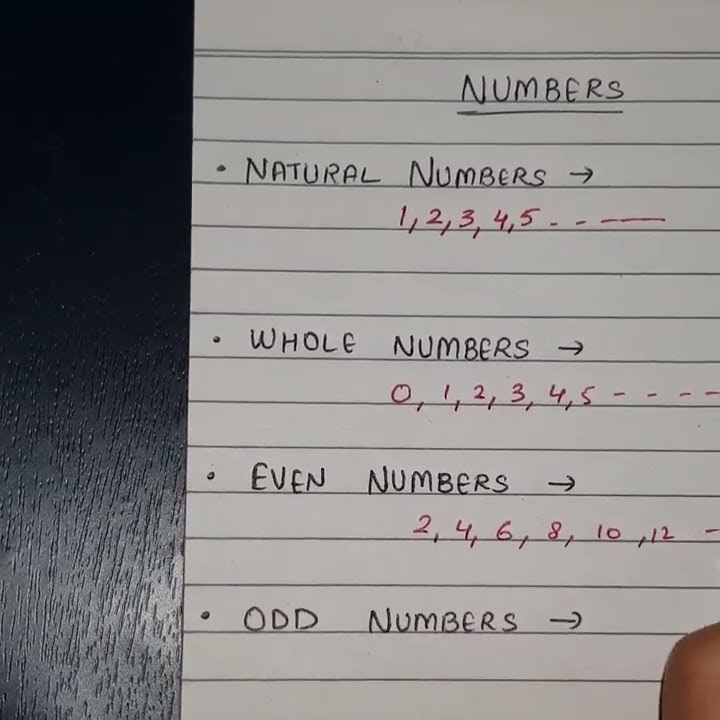 NUMBERS
• NATURAL NUMBERS →
1, 2, 3, 4, 5 - - —
• WHOLE NUMBERS →
0, 1, 2, 3, 4, 5 - - - -
• EVEN NUMBERS →
2, 4, 6, 8, 10, 12 -
• ODD NUMBERS →